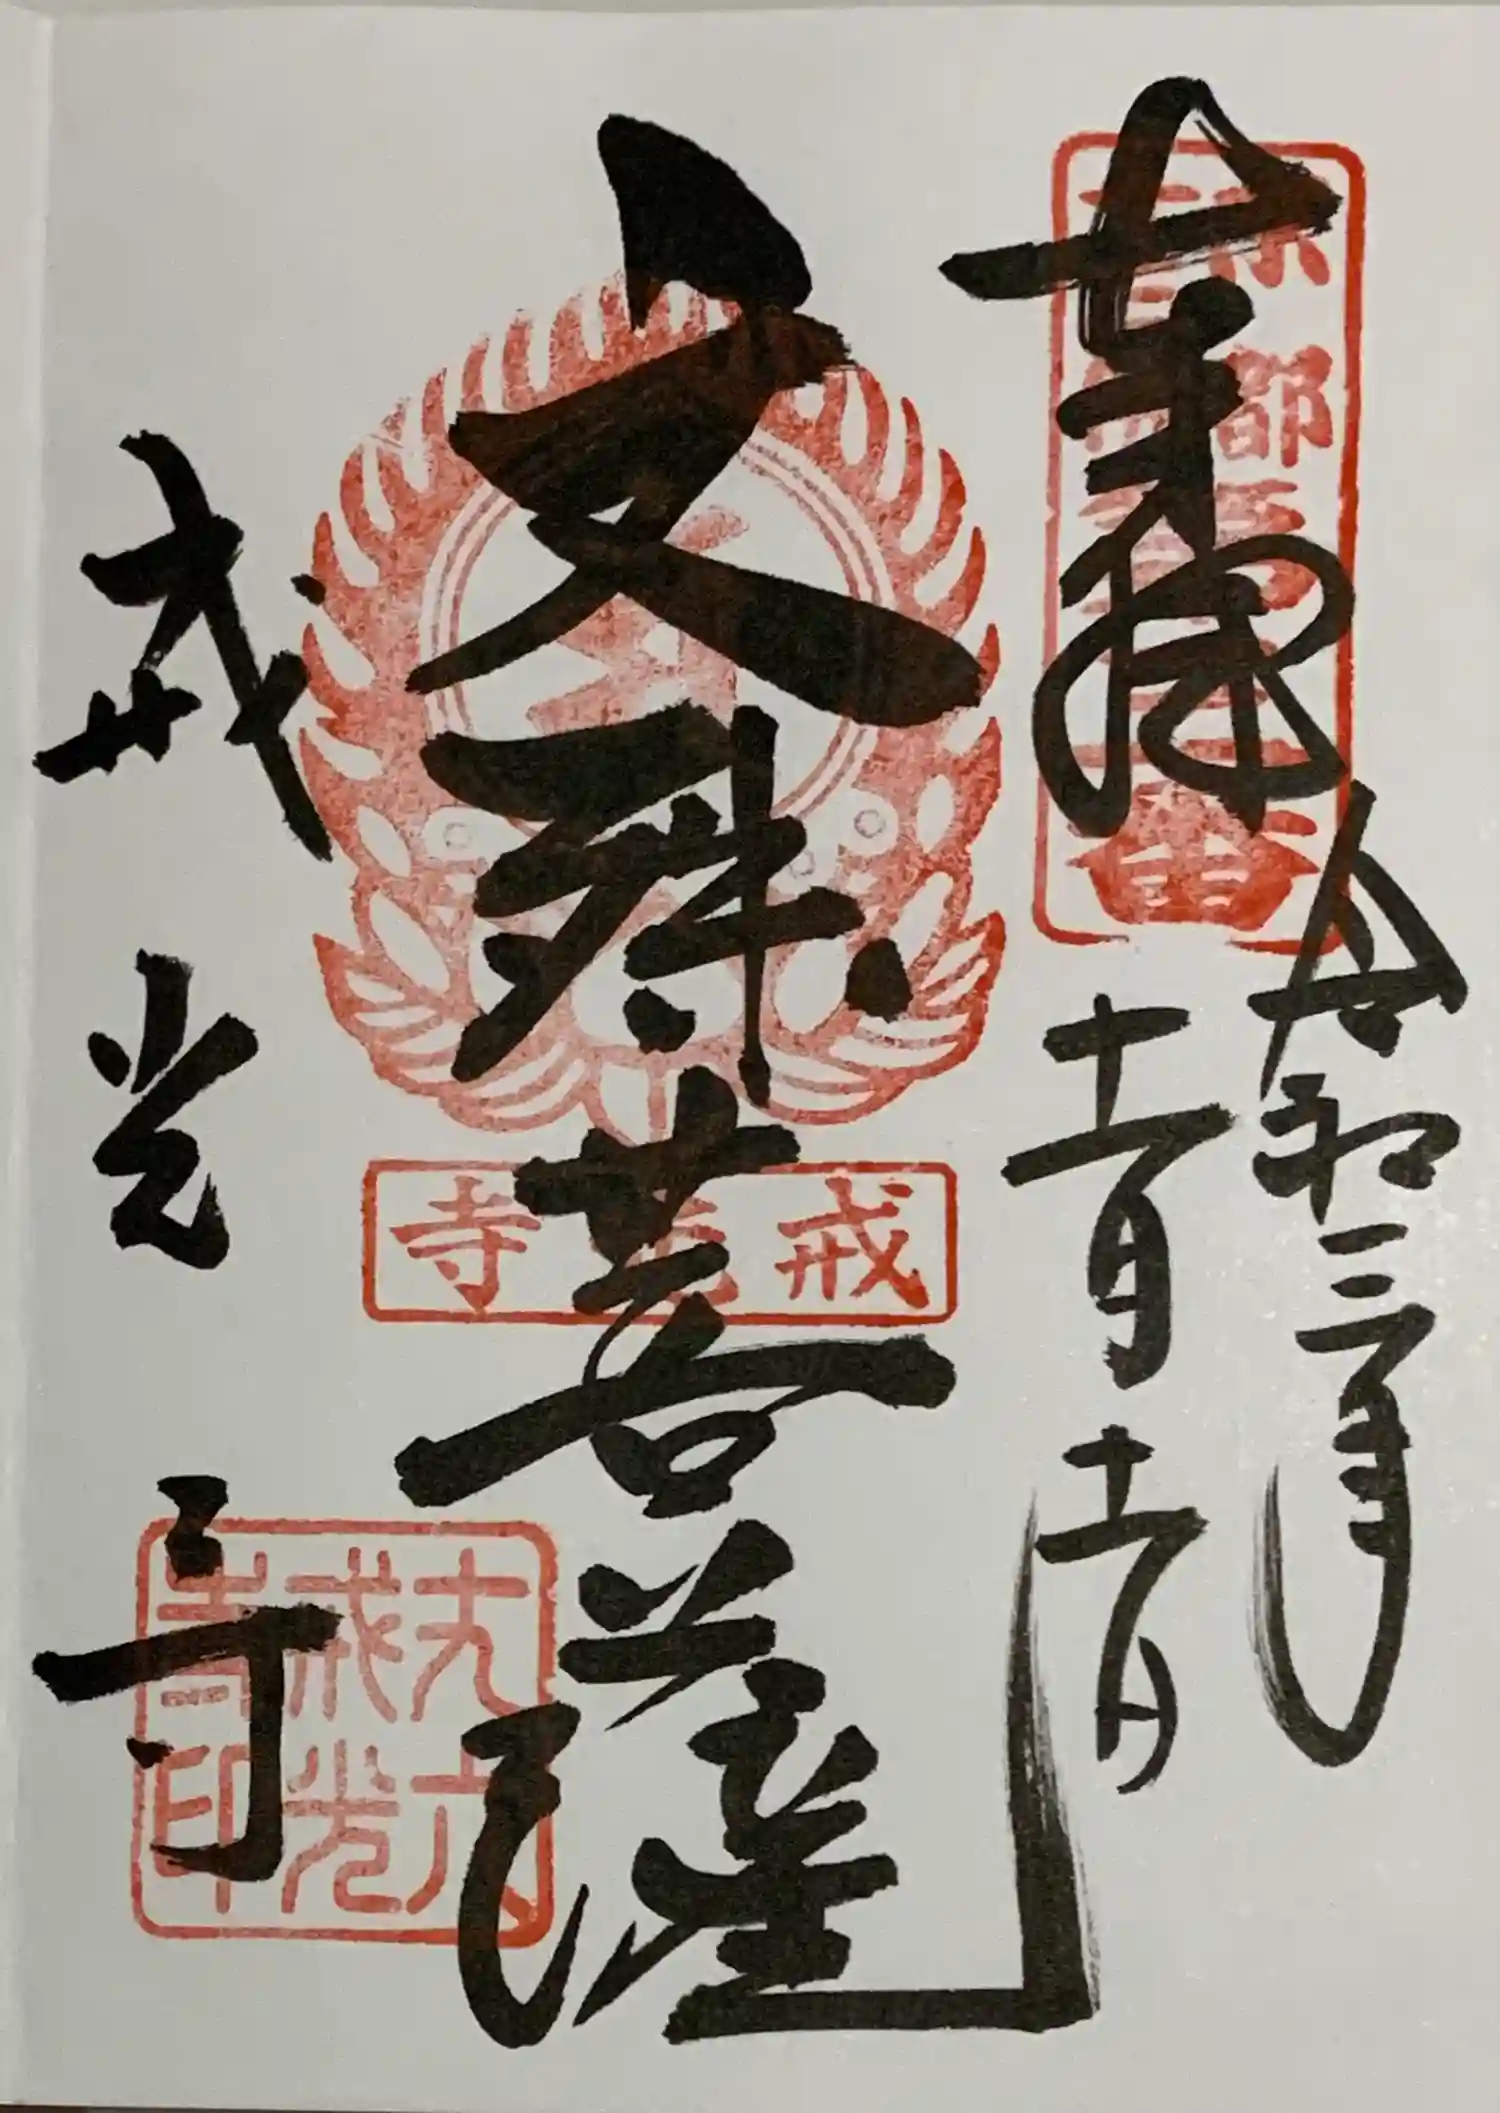 奉拝
令和三年
十一月十一日
京都
文殊菩薩
戒光寺
戒光寺
丈六
戒光
寺印